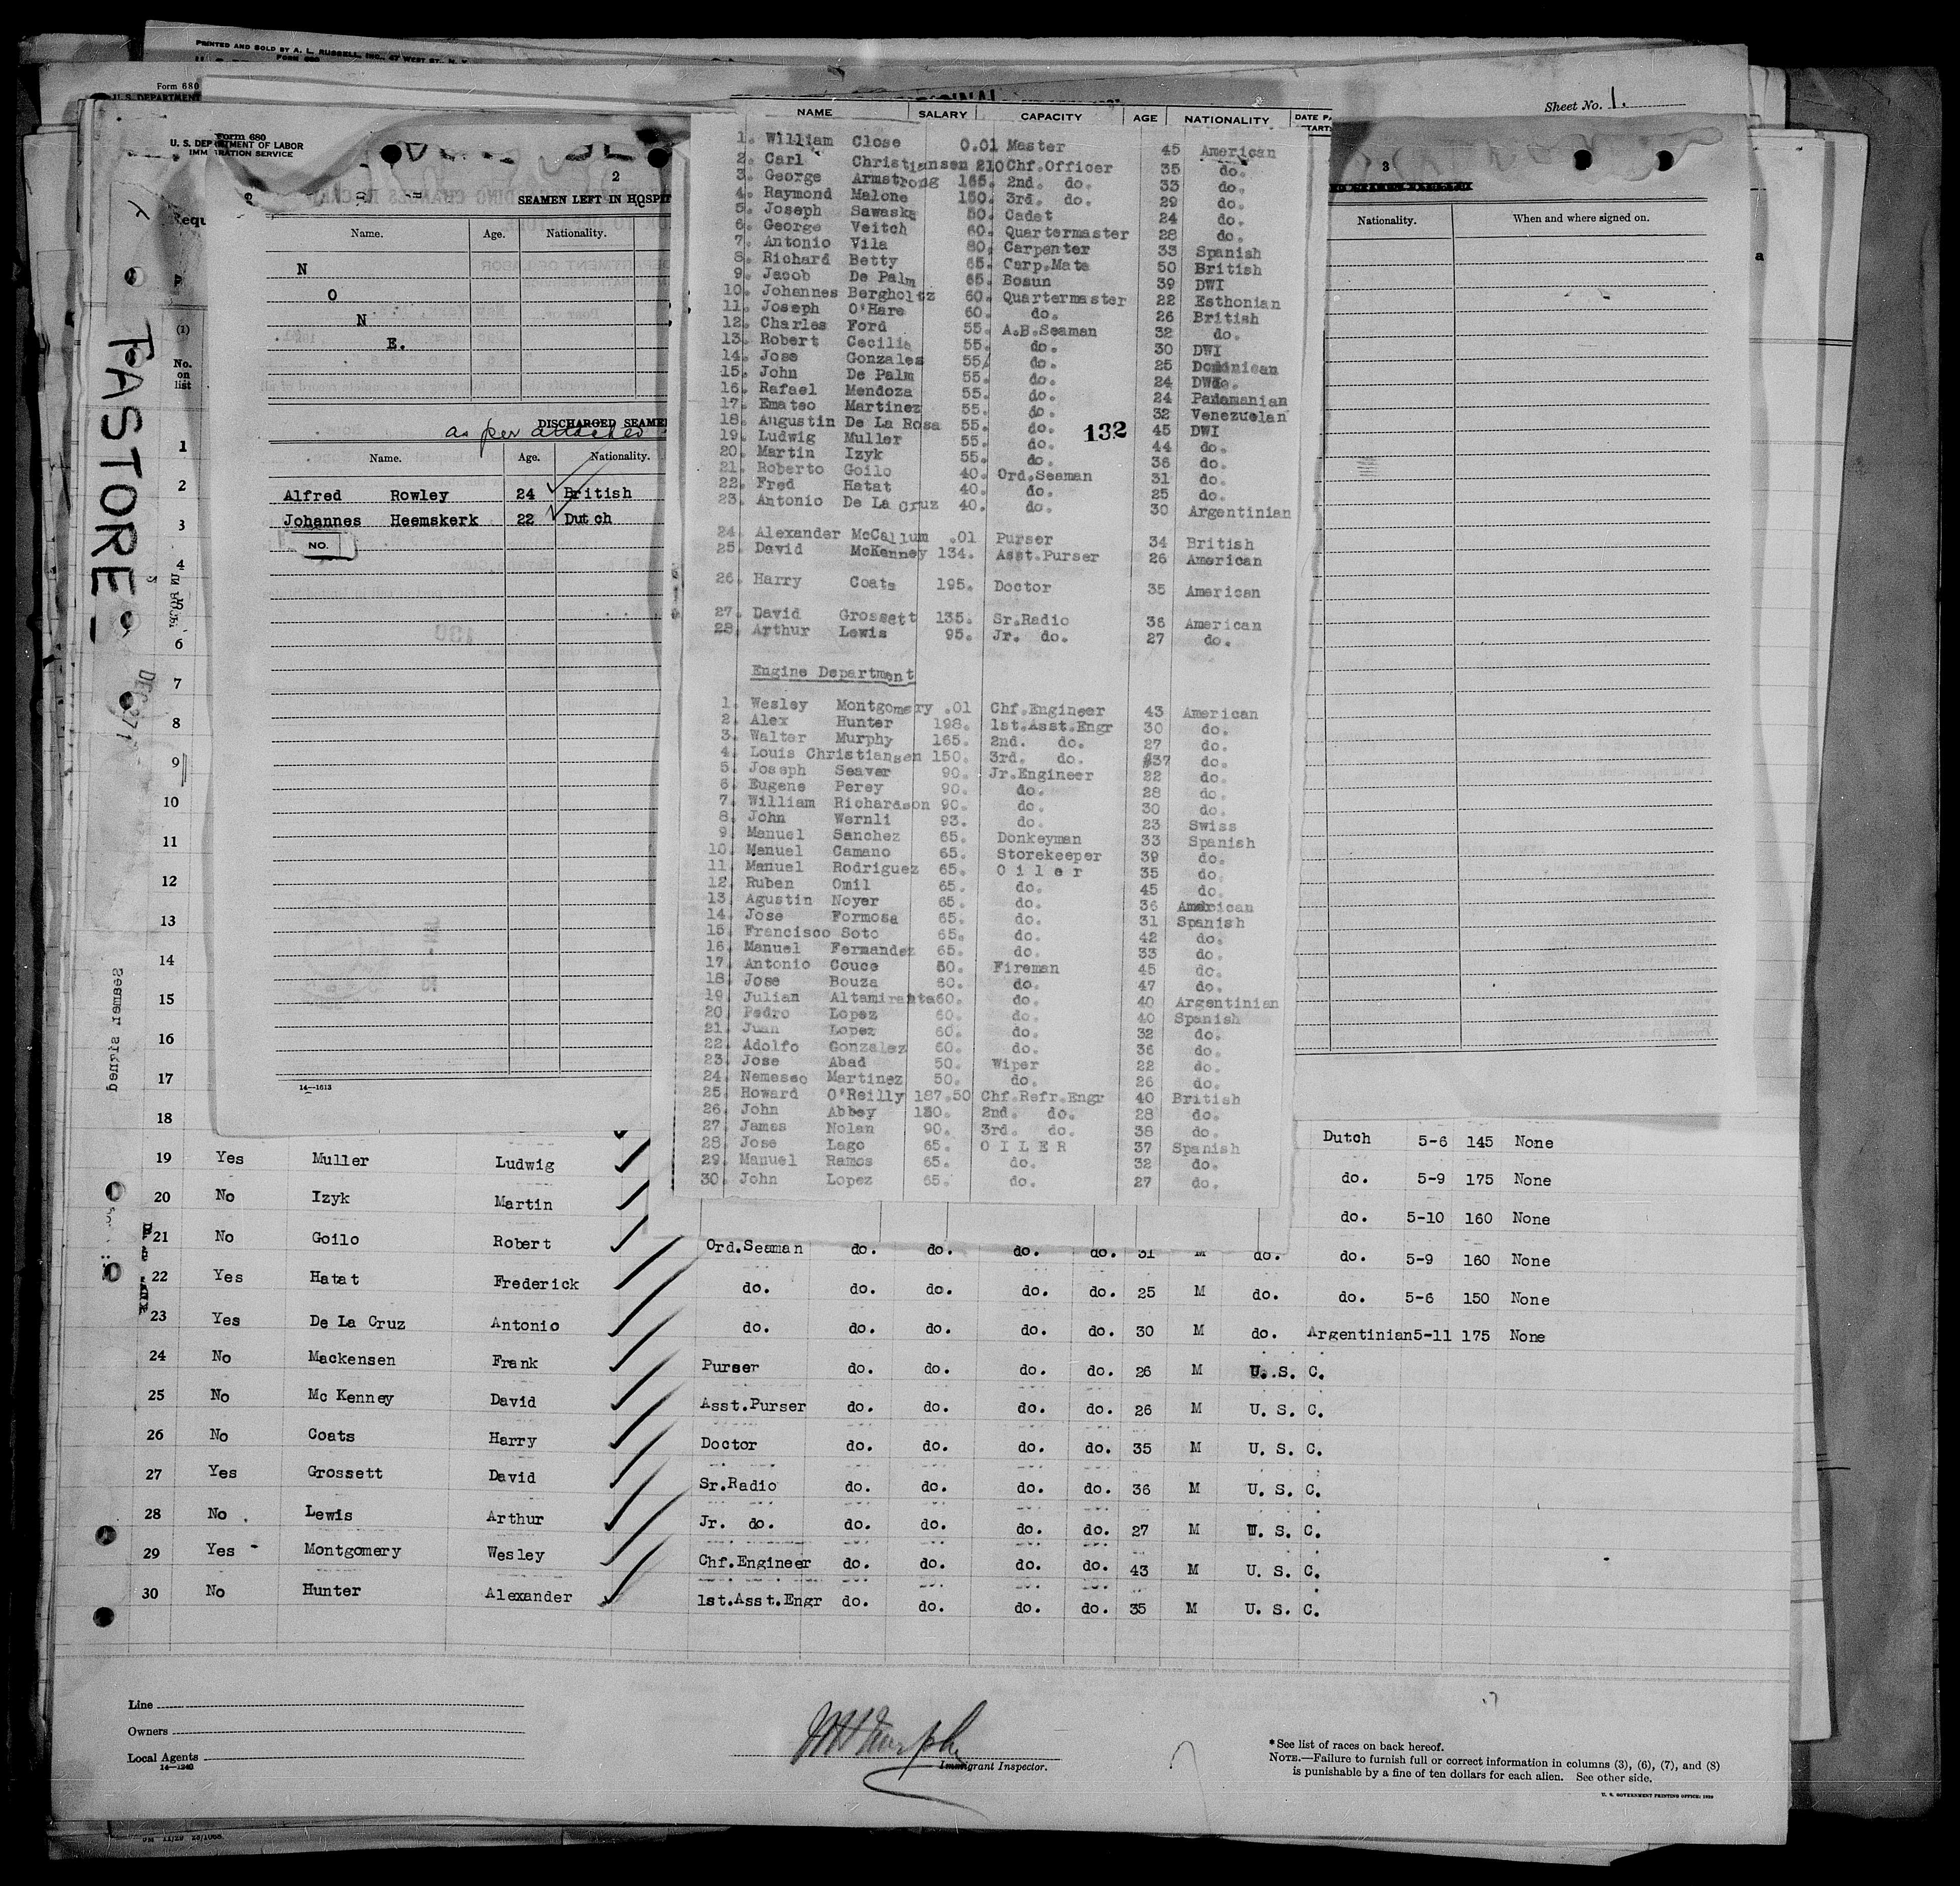 PRINTED AND SOLD BY A. L. RUSSELL, INC., 47 WEST ST., N. Y.
Form 680
Form 680
U. S. DEPARTMENT
Sheet No. 1.
Form 680
U. S. DEPARTMENT OF LABOR
IMMIGRATION SERVICE
2
SEAMEN LEFT IN HOSPIT
Name. Age. Nationality.
N
O
N
E.
DISCHARGED SEAME
as per attached
Name. Age. Nationality.
Alfred Rowley 24 British
Johannes Heemskerk 22 Dutch
NO.
14—1613
3
Nationality. When and where signed on.
PASTORE
(1)
No.
on
list
NAME SALARY CAPACITY AGE NATIONALITY DATE PA
START
1. William Close 0.01 Master 45 American
2. Carl Christiansen 210 Chf.Officer 35 do.
3. George Armstrong 165. 2nd. do. 33 do.
4. Raymond Malone 150. 3rd. do. 29 do.
5. Joseph Sawaska 50. Cadet 24 do.
6. George Veitch 60. Quartermaster 28 do.
7. Antonio Vila 80. Carpenter 33 Spanish
8. Richard Betty 65. Carp.Mate 50 British
9. Jacob De Palm 65. Bosun 39 DWI
10. Johannes Bergholtz 60. Quartermaster 22 Esthonian
11. Joseph O'Hare 60. do. 26 British
12. Charles Ford 55. A.B.Seaman 32 do.
13. Robert Cecilia 55. do. 30 DWI
14. Jose Gonzales 55/ do. 25 Dominican
15. John De Palm 55. do. 24 DWI
16. Rafael Mendoza 55. do. 24 Panamanian
17. Emateo Martinez 55. do. 32 Venezuelan
18. Augustin De La Rosa 55. do. 45 DWI
132
19. Ludwig Muller 55. do. 44 do.
20. Martin Izyk 55. do. 36 do.
21. Roberto Goilo 40. Ord.Seaman 31 do.
22. Fred Hatat 40. do. 25 do.
23. Antonio De La Cruz 40. do. 30 Argentinian
24. Alexander McCallum .01 Purser 34 British
25. David McKenney 134. Asst.Purser 26 American
26. Harry Coats 195. Doctor 35 American
27. David Grossett 135. Sr.Radio 36 American
28. Arthur Lewis 95. Jr. do. 27 do.
Engine Department
1. Wesley Montgomery .01 Chf.Engineer 43 American
2. Alex Hunter 198. 1st.Asst.Engr 30 do.
3. Walter Murphy 165. 2nd. do. 27 do.
4. Louis Christiansen 150. 3rd. do. 37 do.
5. Joseph Seaver 90. Jr.Engineer 22 do.
6. Eugene Perey 90. do. 28 do.
7. William Richardson 90. do. 30 do.
8. John Wernli 93. do. 23 Swiss
9. Manuel Sanchez 65. Donkeyman 33 Spanish
10. Manuel Camano 65. Storekeeper 39 do.
11. Manuel Rodriguez 65. O i l e r 35 do.
12. Ruben Omil 65. do. 45 do.
13. Agustin Noyer 65. do. 36 American
14. Jose Formosa 65. do. 31 Spanish
15. Francisco Soto 65. do. 42 do.
16. Manuel Fernandez 65. do. 33 do.
17. Antonio Couce 60. Fireman 45 do.
18. Jose Bouza 60. do. 47 do.
19. Julian Altamiranta 60. do. 40 Argentinian
20. Pedro Lopez 60. do. 40 Spanish
21. Juan Lopez 60. do. 32 do.
22. Adolfo Gonzalez 60. do. 36 do.
23. Jose Abad 50. Wiper 22 do.
24. Nemesso Martinez 50. do. 26 do.
25. Howard O'Reilly 187.50 Chf.Refr.Engr 40 British
26. John Abbey 130. 2nd. do. 28 do.
27. James Nolan 90. 3rd. do. 38 do.
28. Jose Lago 65. O I L E R 37 Spanish
29. Manuel Ramos 65. do. 32 do.
30. John Lopez 65. do. 27 do.
1
2
3
4
5
6
7
8
9
10
11
12
13
14
15
16
17
18 Dutch 5-6 145 None
19 Yes Muller Ludwig do. 5-9 175 None
20 No Izyk Martin do. 5-10 160 None
21 No Goilo Robert Ord.Seaman do. do. do. do. 31 M do. do. 5-9 160 None
22 Yes Hatat Frederick do. do. do. do. do. 25 M do. do. 5-6 150 None
23 Yes De La Cruz Antonio do. do. do. do. do. 30 M do. Argentinian 5-11 175 None
24 No Mackensen Frank Purser do. do. do. do. 26 M U. S. C.
25 No Mc Kenney David Asst.Purser do. do. do. do. 26 M U. S. C.
26 No Coats Harry Doctor do. do. do. do. 35 M U. S. C.
27 Yes Grossett David Sr.Radio do. do. do. do. 36 M U. S. C.
28 No Lewis Arthur Jr. do. do. do. do. do. 27 M U. S. C.
29 Yes Montgomery Wesley Chf.Engineer do. do. do. do. 43 M U. S. C.
30 No Hunter Alexander 1st.Asst.Engr do. do. do. do. 35 M U. S. C.
Line
Owners
Local Agents
14—1240
Immigrant Inspector.
*See list of races on back hereof.
NOTE.—Failure to furnish full or correct information in columns (3), (6), (7), and (8)
is punishable by a fine of ten dollars for each alien. See other side.
U. S. GOVERNMENT PRINTING OFFICE: 1929